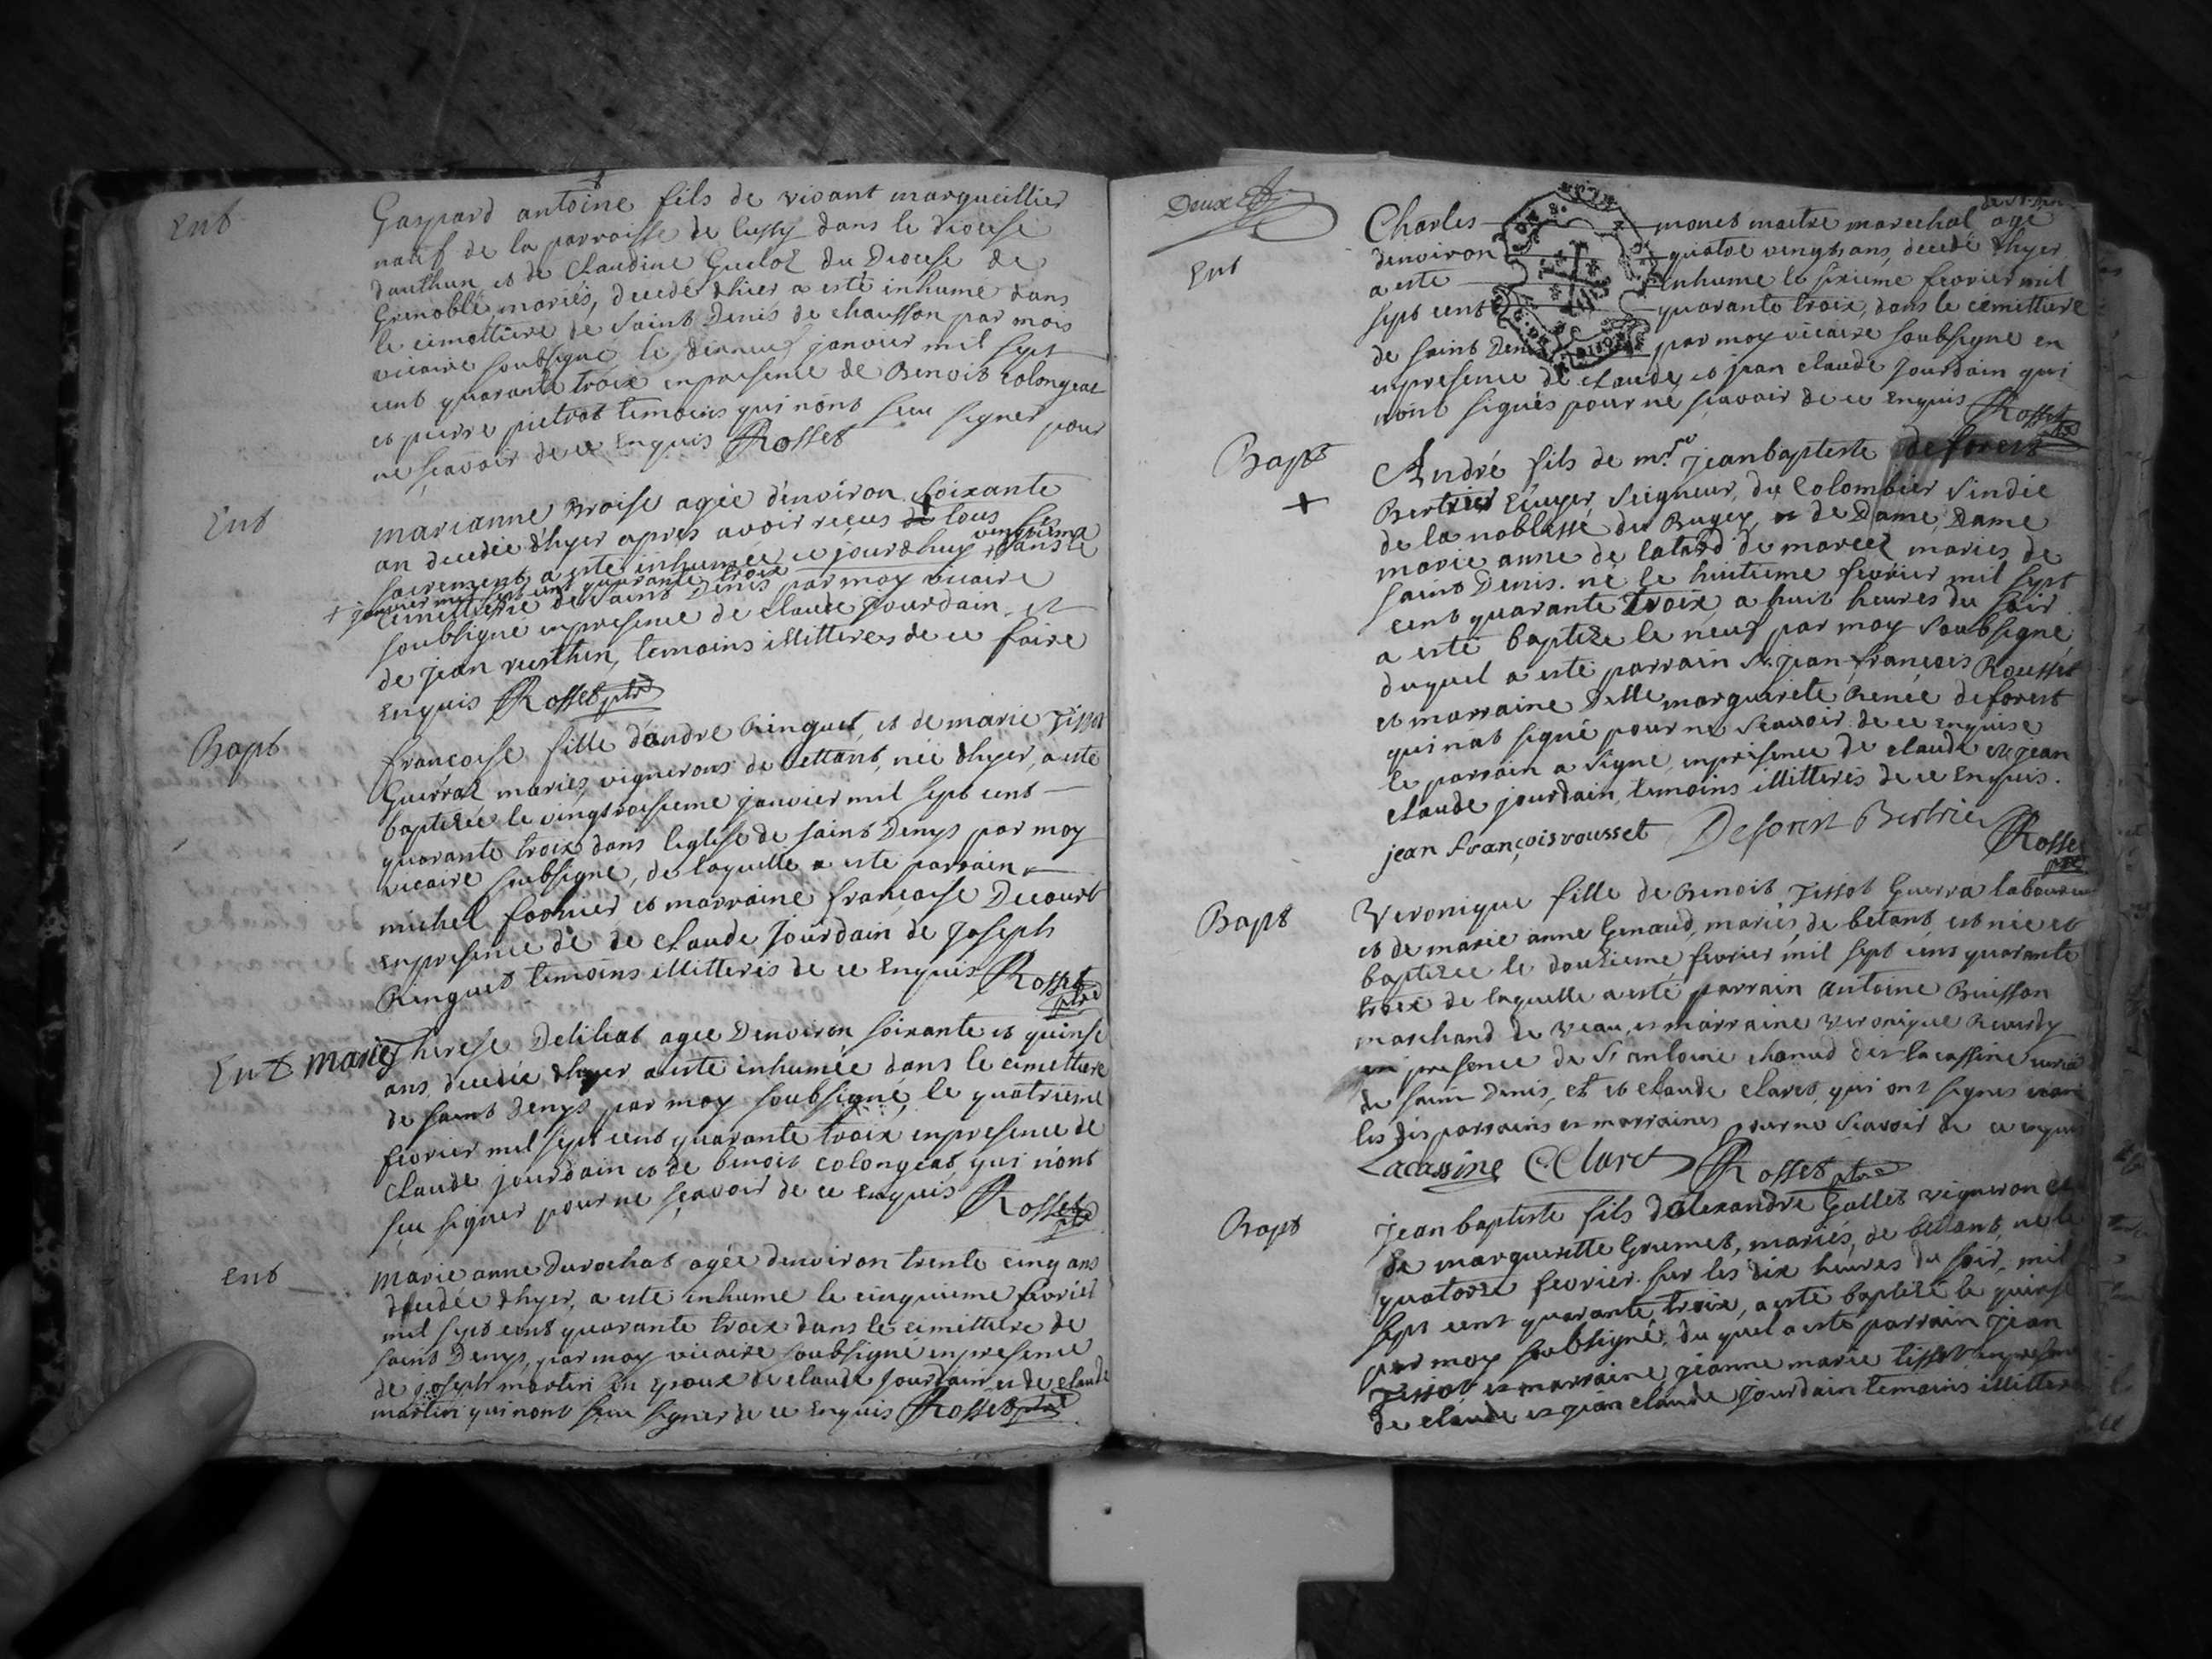 Ent
Gaspard antoine fils de vivant marguillier
natif de la parroisse de Cussy dans le diocese
dauthun et de Claudine Gueloz du Diocese de
Grenoble, mariés, decedé dhier a esté inhumé dans
le cimettiere de Saint Denis de chausson par mois
vicaire soubsigné le dixneuf janvier mil sept
cent quarante troix enpresence de Benoit Colongeat
et pierre pietrat temoins qui nont sceu signer pour
ne sçavoir de ce Enquis Rosset
Ent
marianne Broise agée denviron soixante
an decedée dhyer apres avoir reçus tous ses
sacrements a esté inhumée ce jourdhuy + dans le
+ janvier mil sept cent quarante troix
cimettiere de Saint Denis par moy vicaire
soubsigné enpresence de claude Jourdain et
de jean temoins illitteres de ce faire
Enquis Rosset ptre
Bapt
francoise fille dandre Ringuet, et de marie Tissot
Guerraz mariés, vignerons de bettant, née dhyer, a esté
baptisée le vingtroisieme janvier mil sept cent
quarante troix dans leglise de saint Denys par moy
vicaire soubsigné, de laquelle a esté parrain
michel et marraine francoise Decourt
enpresence de de claude Jourdain de Joseph
Ringuet temoins illitteris de ce Enquis Rosset
ptre
Ent marie Therese Deliliat agee Denviron soixante et quinse
ans, decedée dhyer a esté inhumée dans le cimettiere
de saint Denys par moy soubsigné, le quatrieme
fevrier mil sept cent quarante troix enpresence de
Claude jourdain et de benoit Colongeat qui nont
sceu signer pour ne sçavoir de ce enquis Rosset
ptre
Ent
marie anne Durochat agée denviron trente cinq ans
decedée dhyer, a esté inhumé le cinquieme fevrier
mil sept cent quarante troix dans le cimittiere de
saint Denys, par moy vicaire soubsigné enpresence
de joseph martin epoux de claude Jourdain et de claude
martin qui nont sceu signer de ce Enquis Rosset ptre
Deux
Ent
Charles monet maitre marechal agé
denviron quatre vingts ans, decedé dhyer
a esté inhume le sixieme fevrier mil
sept cent quarante troix, dans le cemittiere
de saint Denis par moy vicaire soubsigne en
enpresence de claude, et jean claude Jourdain qui
nont signés pour ne sçavoir de ce Enquis Rosset
Bapt
+
André fils de mre jeanbaptiste deforest
Bertrier Ecuyer, Seigneur du Colombier Sindic
de la noblesse du Bugey, et de Dame, Dame
marie anne de latard de marcel mariés de
saint Denis. né le huitieme fevrier mil sept
cent quarante troix, a huit heures du soir
a esté baptize le neuf par moy Soubsigné,
duquel a esté parrain Sr. jean françois Rousset
et marraine Dlle marguerete Renée deforest
qui nat signé pour ne scauoir de ce enquise
le parrain a signé, enpresence de claude et jean
claude jourdain temoins illitteris de ce Enquis.
jean françois rousset Deforest Bertrie Rosset
ptre
Bapt
Veronique fille de Benoit Tissot Guerra laboureur
et de marie anne Genaud, mariés, de betant, est née et
baptisée le douzieme fevrier mil sept cens quarante
troix de laquelle a esté parrain Antoine Buisson
marchand de veau, et marraine veronique
en presence de Sr antoine chanud dit lacassine curé
de saint Denis, et et claude claret, qui ont signes non
les dis parrains et marraines pour ne Scavoir de ce enquis
Lacassine C. Claret Rosset ptre
Bapt
Jean baptiste fils dalexandre Gallet vigneron et
de marguerite Grumet, mariés, de bettant, ne le
quatorze fevrier sur les dix heures du soir, mil
sept cent quarante troix, a esté baptizé le quinse
par moy soubsigné, du quel a esté parrain Jean
Tissot et marraine jeanne marie tissot enpresence
de claude et jean claude Jourdain temoins illitteris